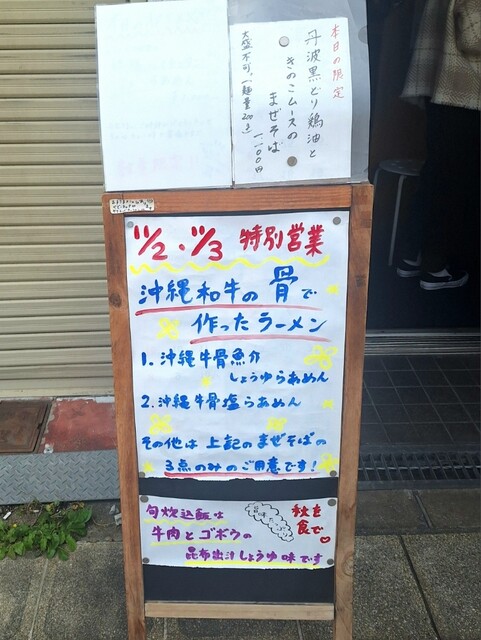 本日の限定
丹波黒どり鶏油と
きのこムースの
まぜそば
一、一〇〇円
大盛不可。(麺量200g)
11/2・11/3 特別営業
沖縄和牛の骨で
作ったラーメン
1. 沖縄牛骨魚介
しょうゆらあめん
2. 沖縄牛骨塩らあめん
その他は上記のまぜそばの
3点のみのご用意です!
旬炊込飯は
牛肉とゴボウの
昆布出汁しょうゆ味です
秋を
食で